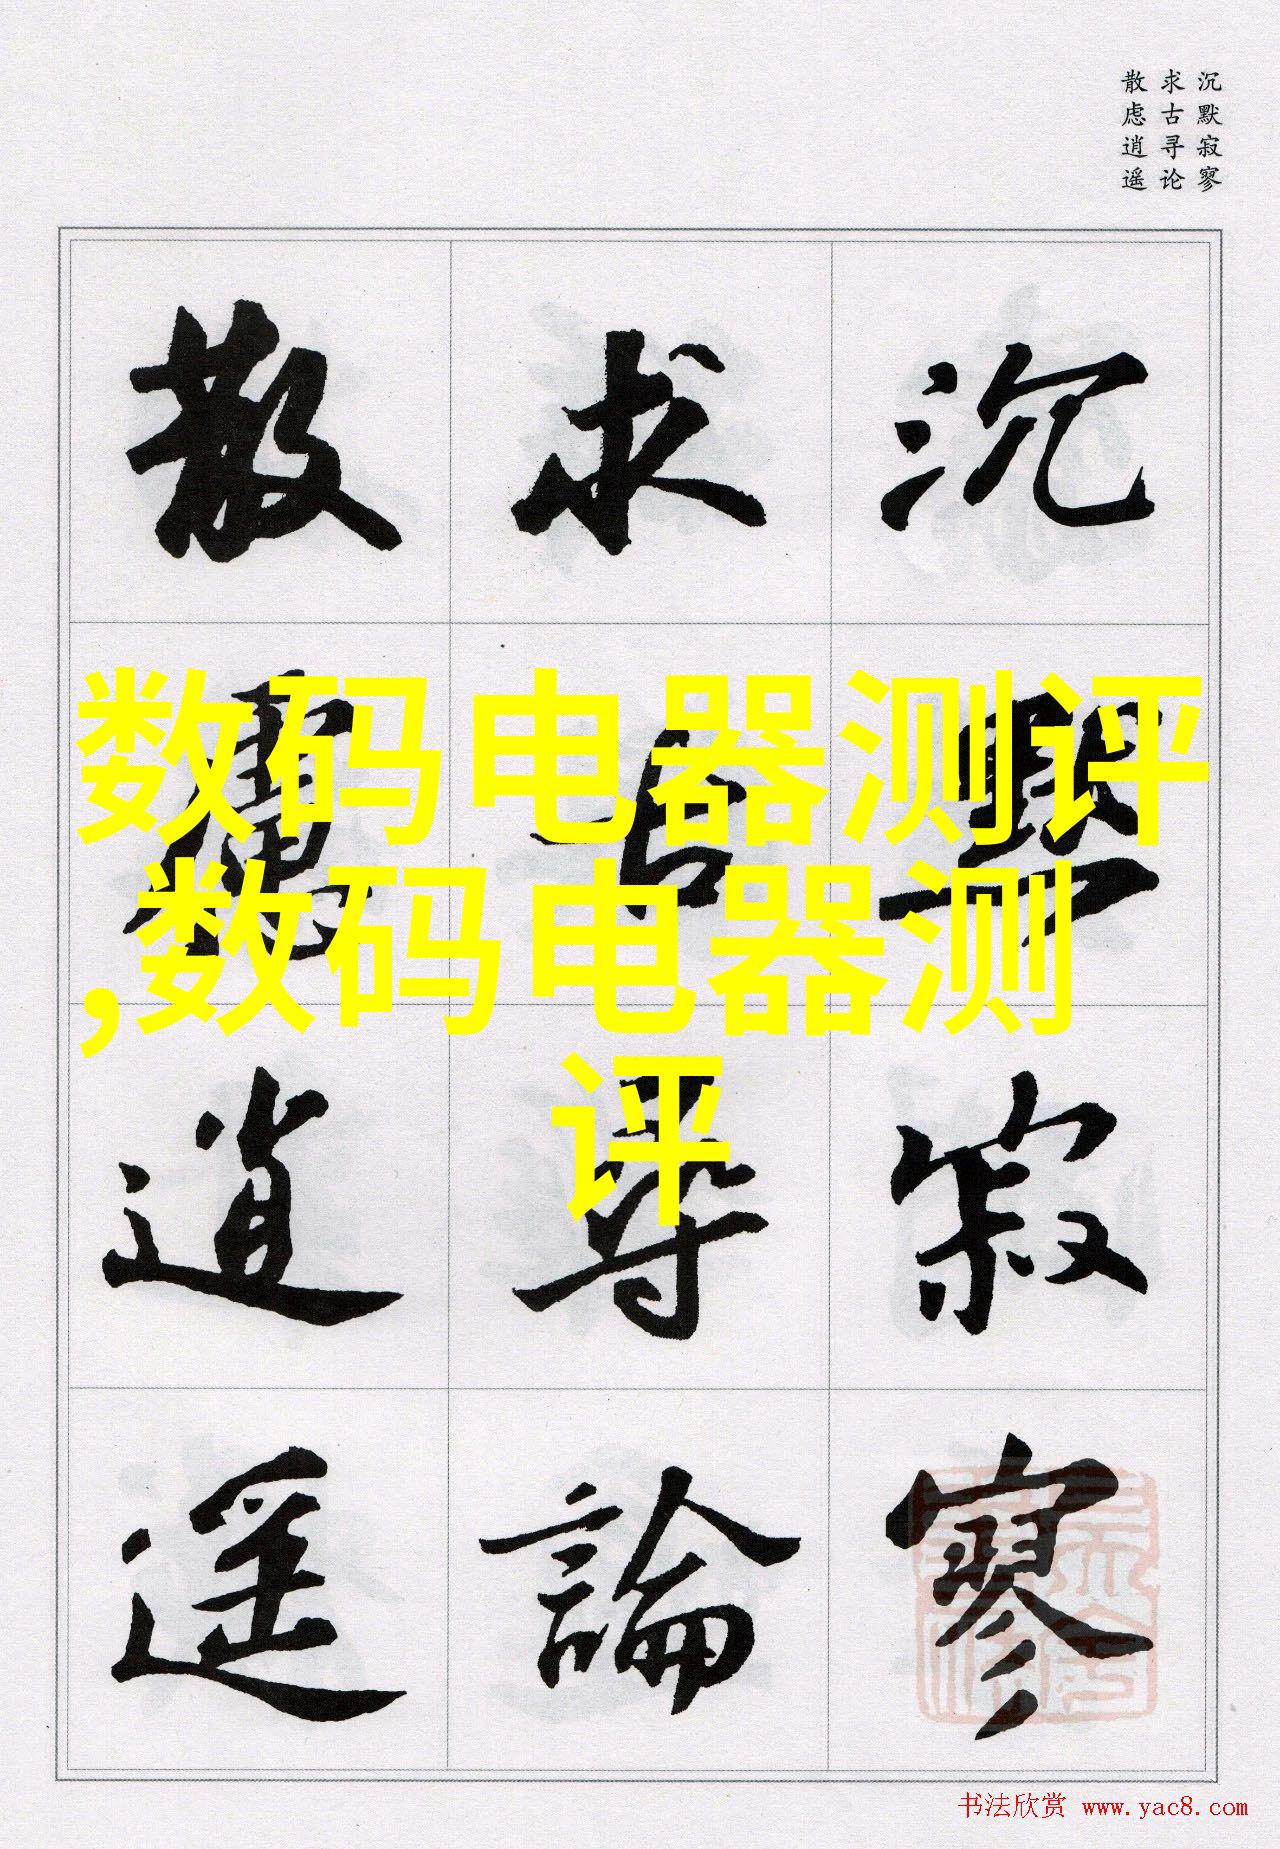 沉默寂寥
求古寻论
散虑逍遥
沉默寂寥
求古尋論
散慮逍遥
数码电器测评
,数码电器测
评
书法欣赏 www.yac8.com